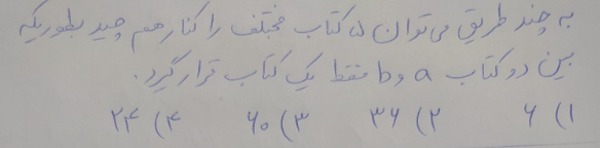 به چند طریق می توان ۵ کتاب مختلف را کنار هم چید بطوریکه
بین دو کتاب a و b فقط یک کتاب قرار گیرد.
۱) ۶ ۲) ۳۶ ۳) ۶۰ ۴) ۲۴